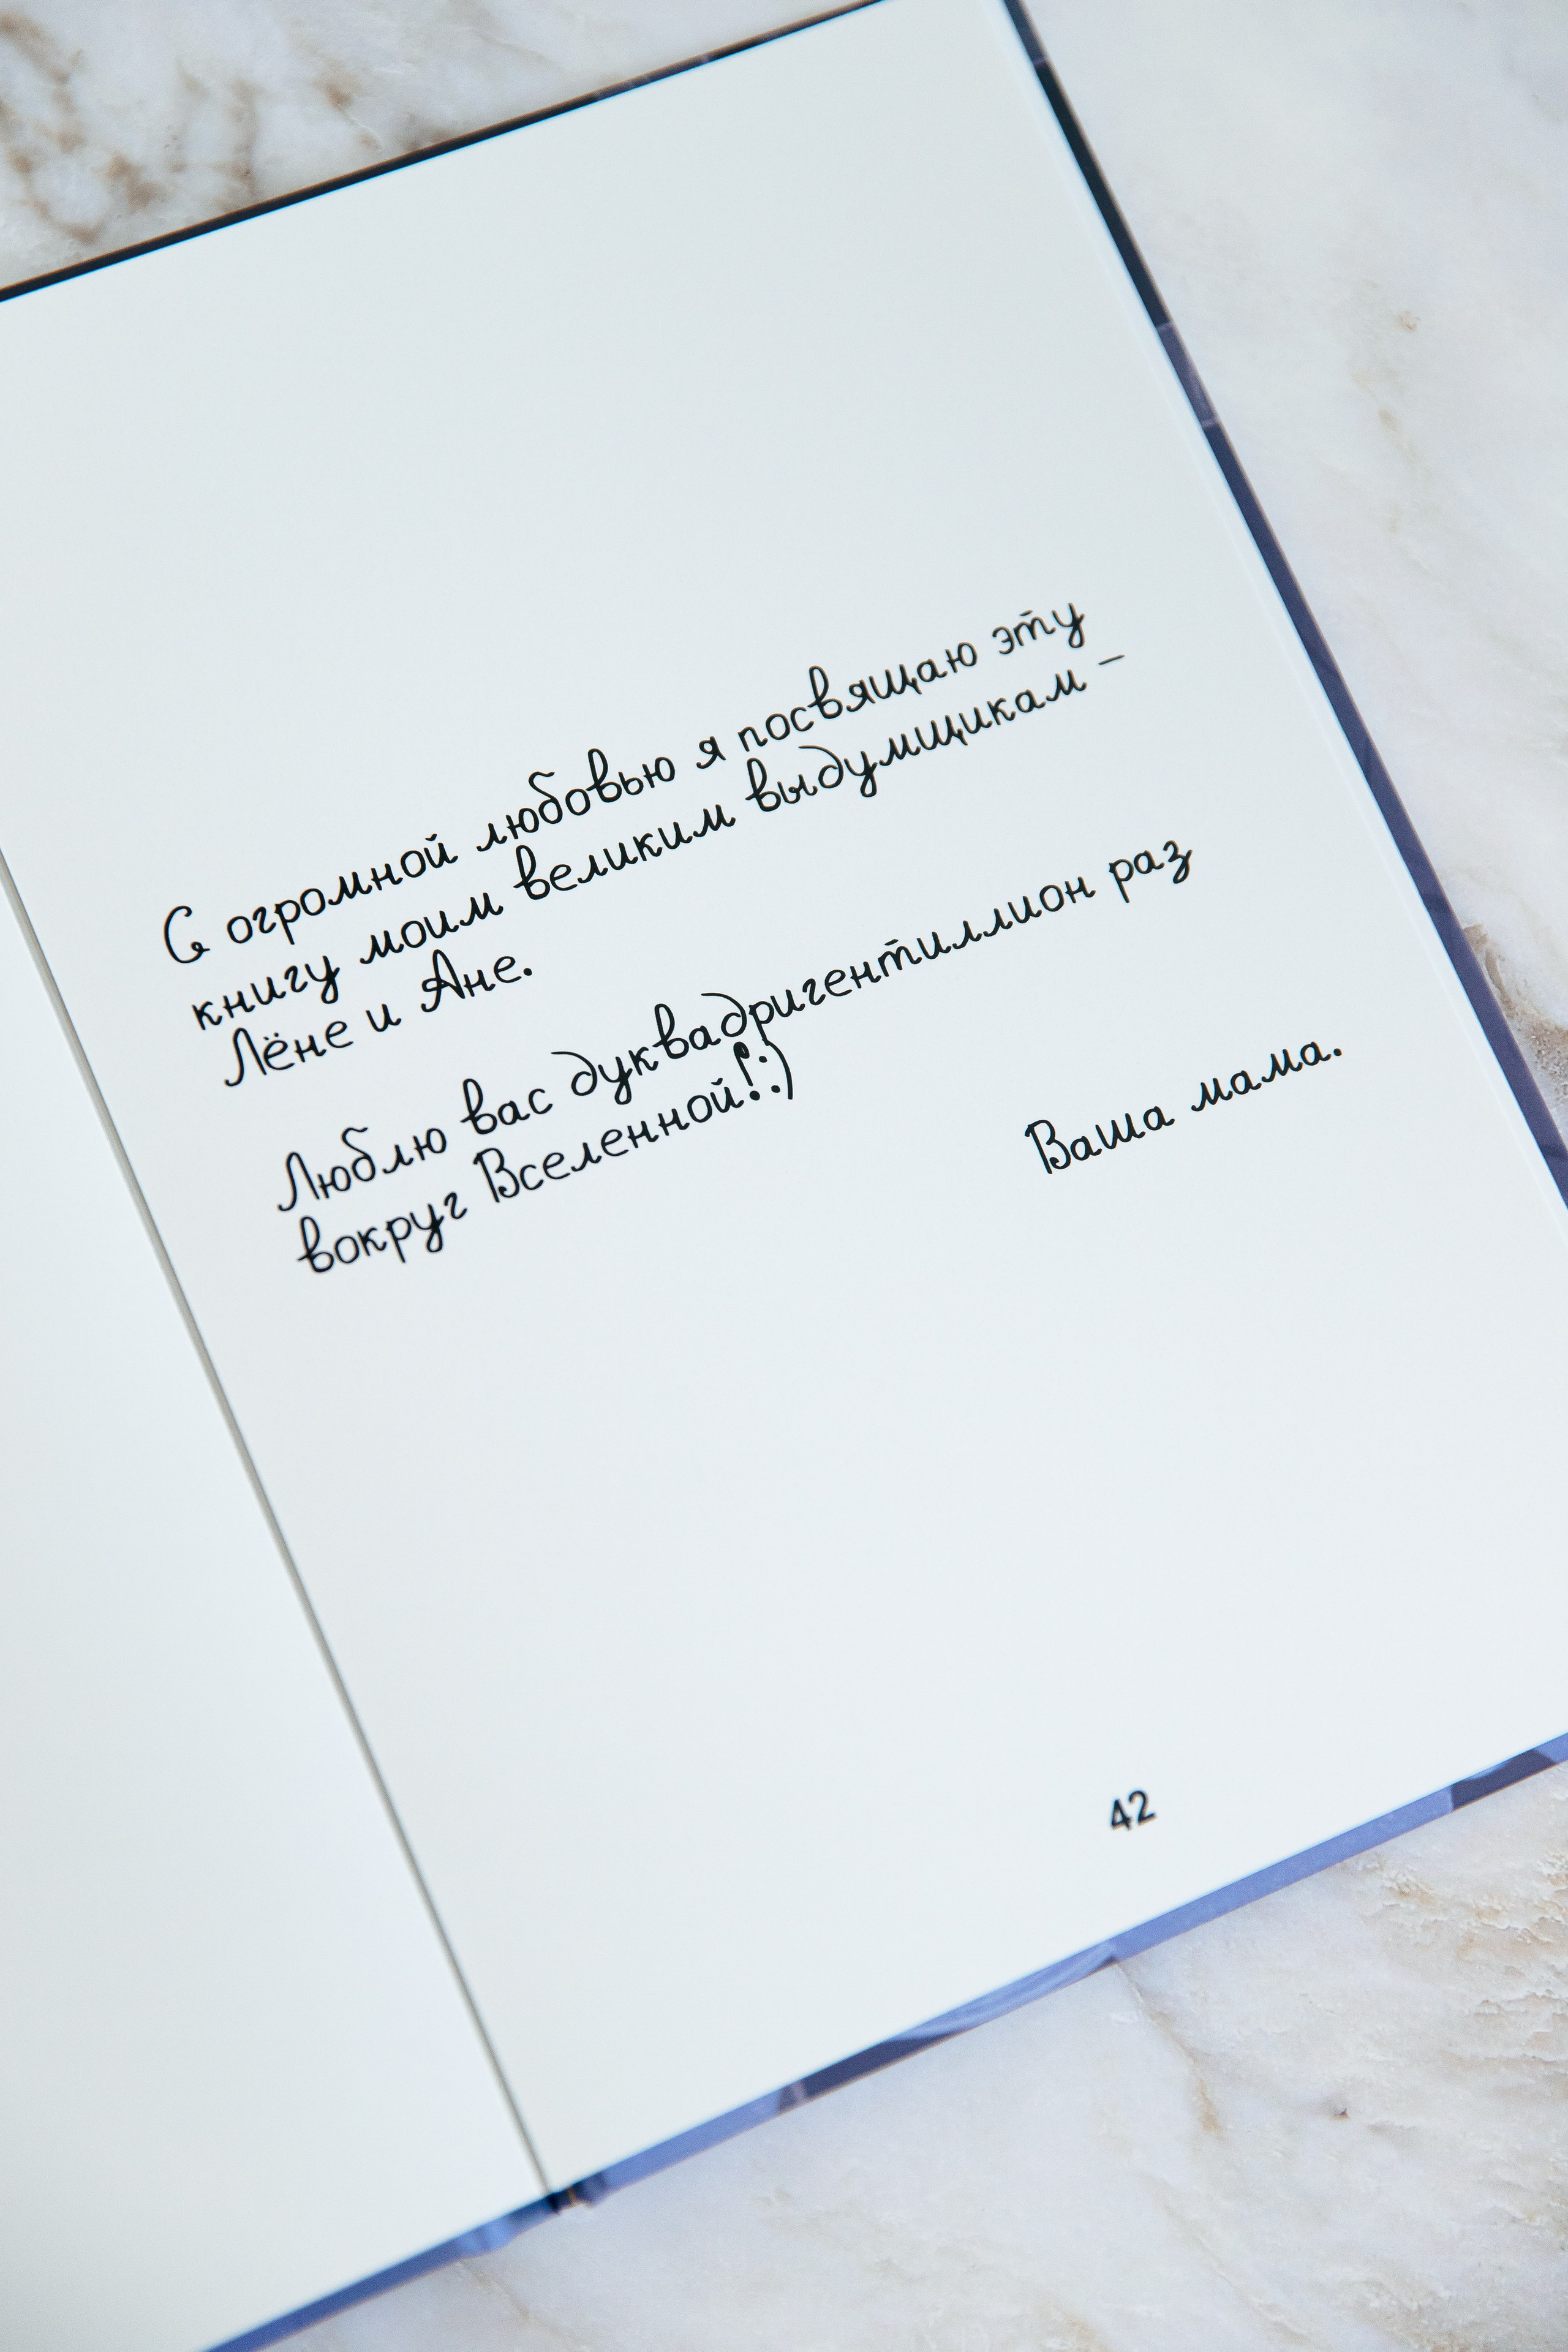 С огромной любовью я посвящаю эту
книгу моим великим выдумщикам –
Лёне и Ане.
Люблю вас дуквадригентиллион раз
вокруг Вселенной!:)
Ваша мама.
42